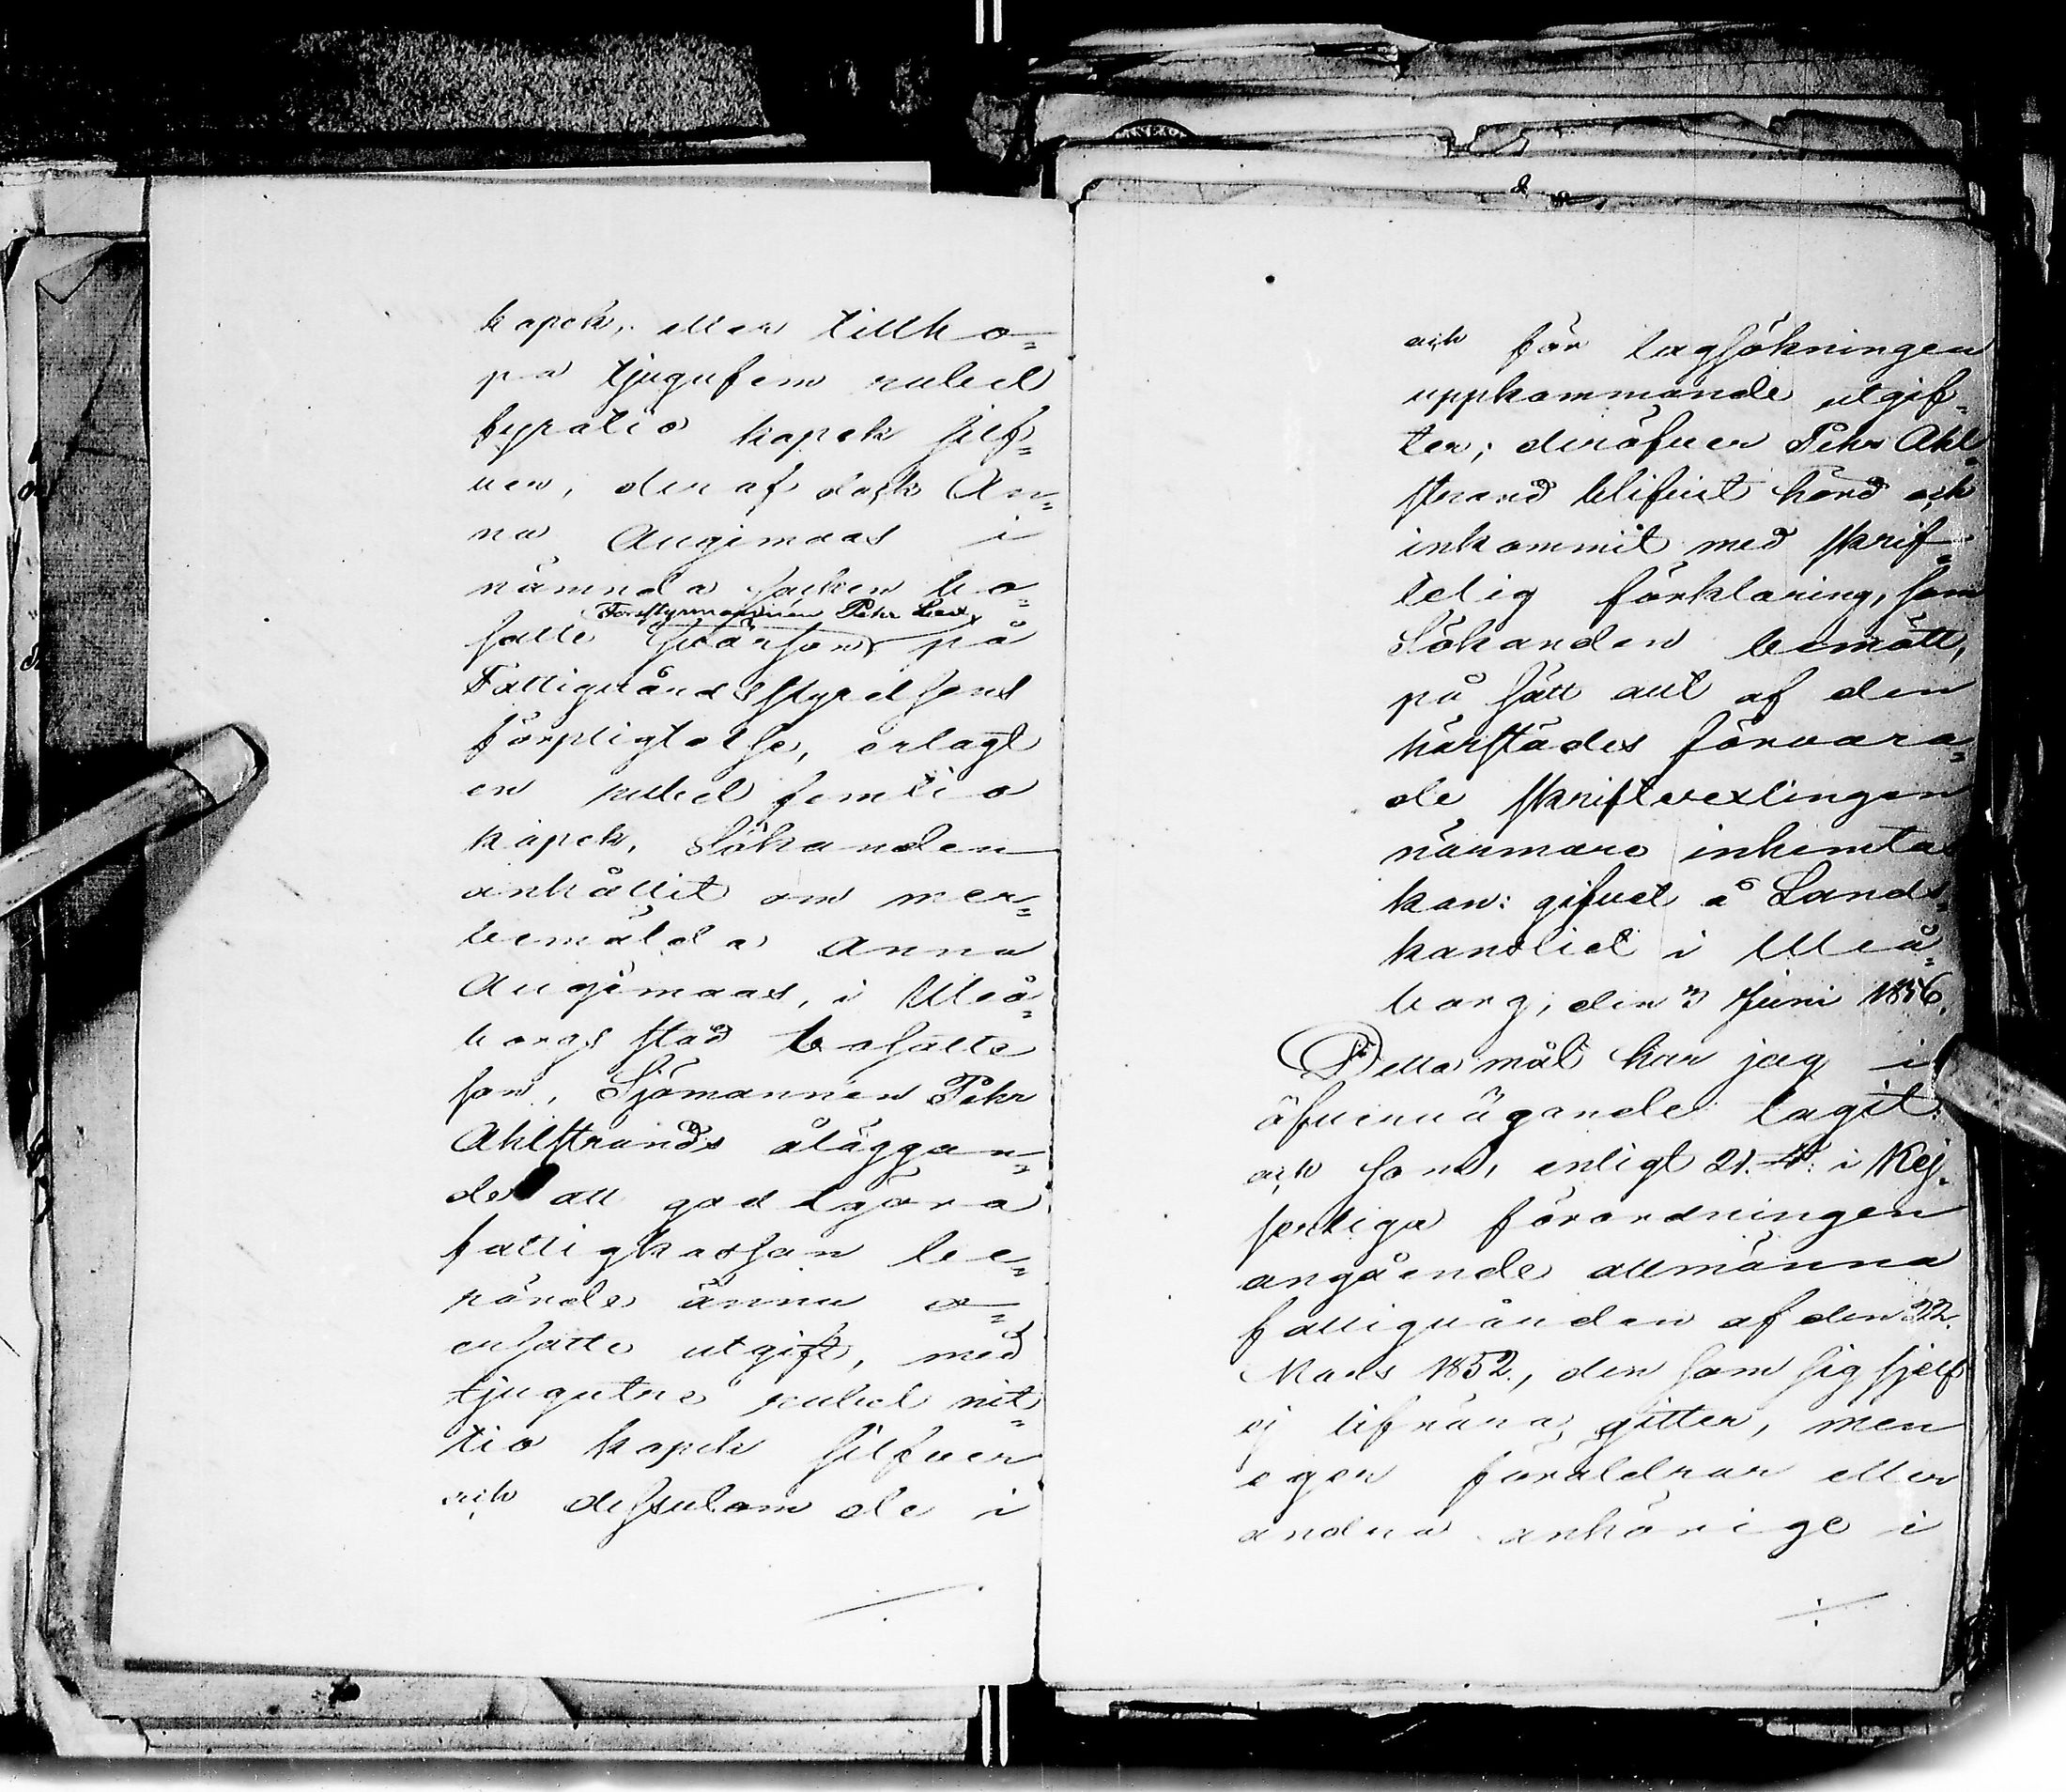 kopek, eller tillho=
pa tjugufem rubel
fyratio kopek silf=
ver, deraf dock An=
na Augimaas i
nämnda socken bo=
Torstyrmannen Pehr Lax
satte svärson, på
Fattigvårdsstyrelsens
förpligtelse, erlagt
en rubel femtio
kopek, Sökanden
anhållit om mer=
bemälda Anna
Augimaas, i Uleå=
borgs stad bosatte
son, Sjömannen Pehr
Ahlstrands åläggan=
de att godtgöra
fattigkassan be=
rörde ännu o=
ersatte utgift, med
tjugutre rubel nit=
tio kopek silfver
och dessutom de i
och för lagsökningen
uppkommande utgif=
ter; deröfver Pehr Ahl=
strand blifvit hörd och
inkommit med skrif=
telig förklaring, som
Sökanden bemött,
på sätt allt af den
härstädes förvara=
de skriftvexlingen
närmare inhemtas
kan: gifvet å Lands=
kansliet i Uleå=
borg, den 3 Juni 1856.
Detta mål har jag i
öfvervägande tagit:
och som, enligt 21. §: i Kej=
serliga förordningen
angående allmänna
fattigvården af den 22.
Mars 1852., den som sig sjelf
ej lifnära gitter, men
eger föräldrar eller
andra anhörige i